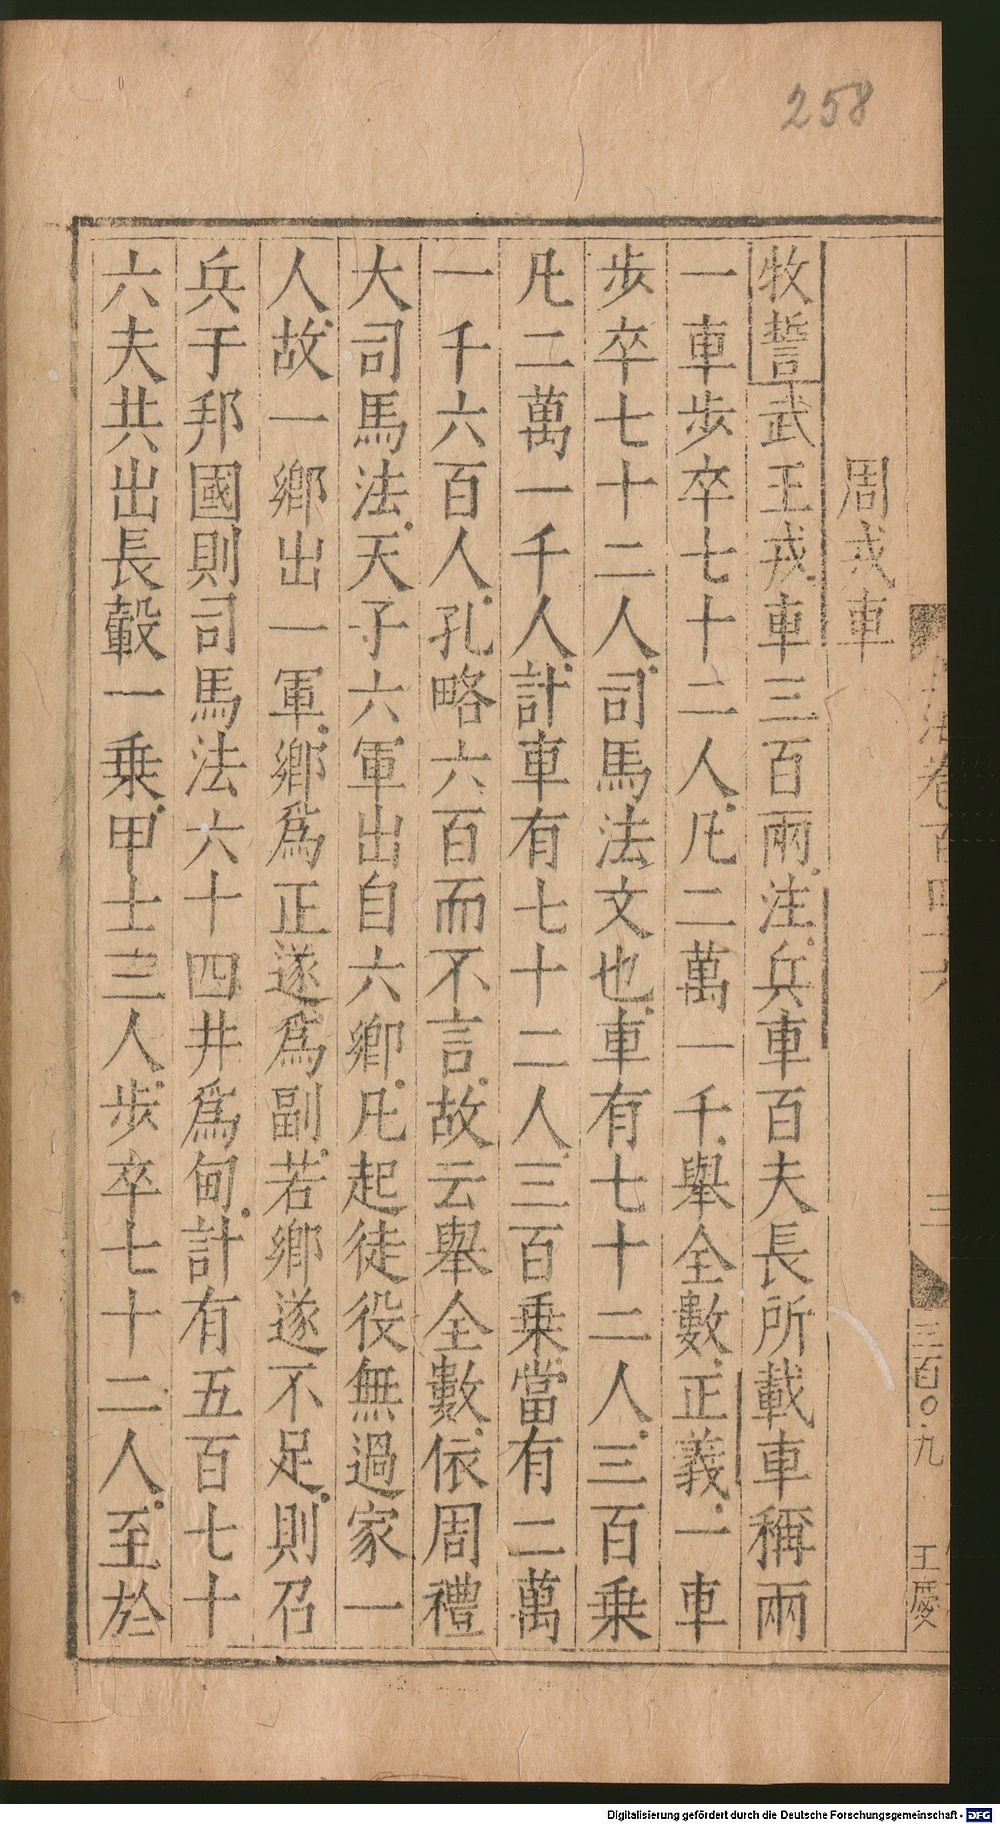 258
周戎車
牧誓武王戎車三百兩注兵車百夫長所載車稱兩
一車步卒七十二人凡二萬一千舉全數正義一車
步卒七十二人司馬法文也車有七十二人三百乗
凡二萬一千人計車有七十二人三百乗當有二萬
一千六百人孔略六百而不言故云舉全數依周禮
大司馬法天子六軍出自六鄉凡起徒役無過家一
人故一鄉出一軍鄉爲正遂爲副若鄉遂不足則召
兵于邦國則司馬法六十四井爲甸計有五百七十
六夫共出長轂一乗甲士三人步卒七十二人至於
三
三百〇九
Digitalisierung gefördert durch die Deutsche Forschungsgemeinschaft - DFG